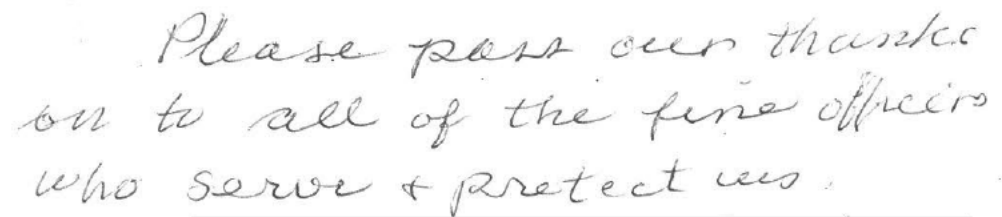 Please pass our thanks
on to all of the fine officers
who serve + protect us.